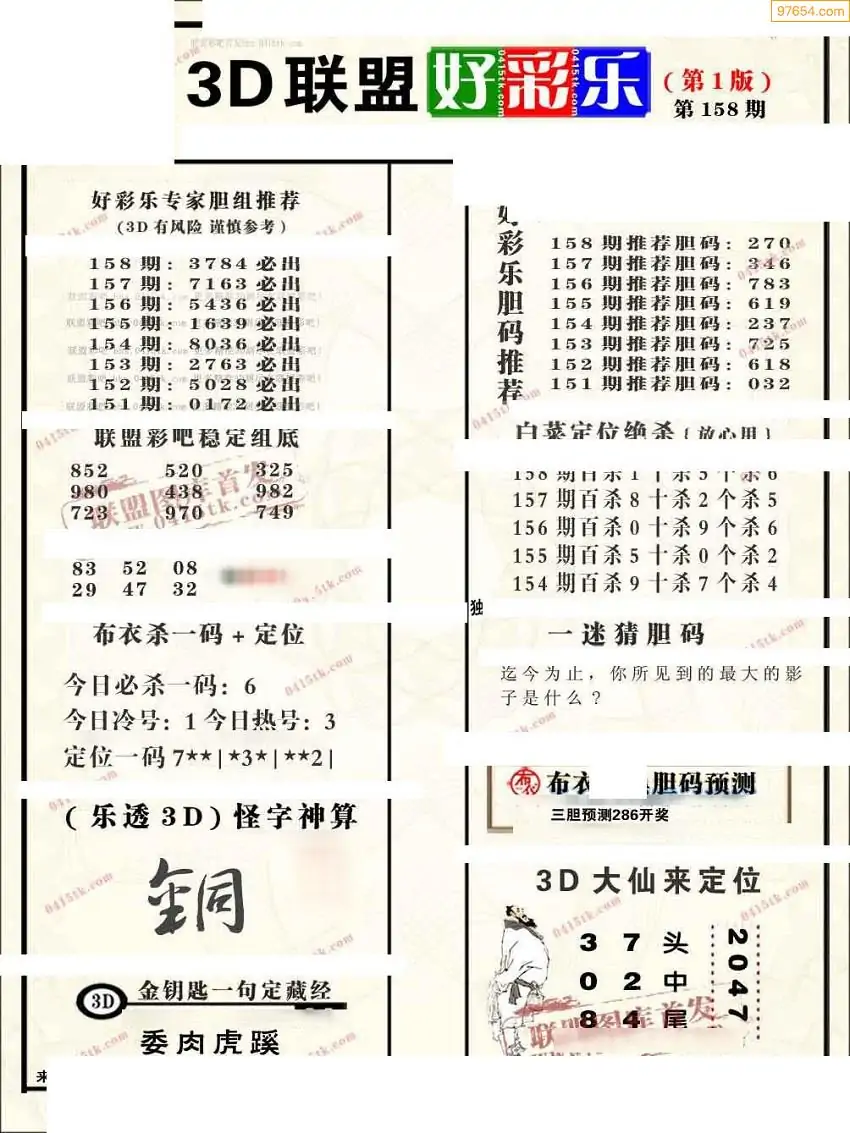 97654.com
3D联盟 好彩乐
(第1版)
第158期
好彩乐专家胆组推荐
(3D有风险 谨慎参考)
158期: 3784必出
157期: 7163必出
156期: 5436必出
155期: 1639必出
154期: 8036必出
153期: 2763必出
152期: 5028必出
151期: 0172必出
联盟彩吧稳定组底
852 520 325
980 438 982
723 970 749
83 52 08
29 47 32
布衣杀一码+定位
今日必杀一码: 6
今日冷号: 1 今日热号: 3
定位一码7**|*3*|**2|
(乐透3D)怪字神算
銅
3D 金钥匙一句定藏经
委肉虎蹊
来
好彩乐胆码推荐
158期推荐胆码: 270
157期推荐胆码: 346
156期推荐胆码: 783
155期推荐胆码: 619
154期推荐胆码: 237
153期推荐胆码: 725
152期推荐胆码: 618
151期推荐胆码: 032
白菜定位绝杀{放心用}
158期百杀1十杀5个杀6
157期百杀8十杀2个杀5
156期百杀0十杀9个杀6
155期百杀5十杀0个杀2
154期百杀9十杀7个杀4
独
一迷猜胆码
迄今为止，你所见到的最大的影
子是什么?
布衣 胆码预测
三胆预测286开奖
3D大仙来定位
3 7 头
0 2 中
8 4 尾
2047
联盟图库首发
0415tk.com